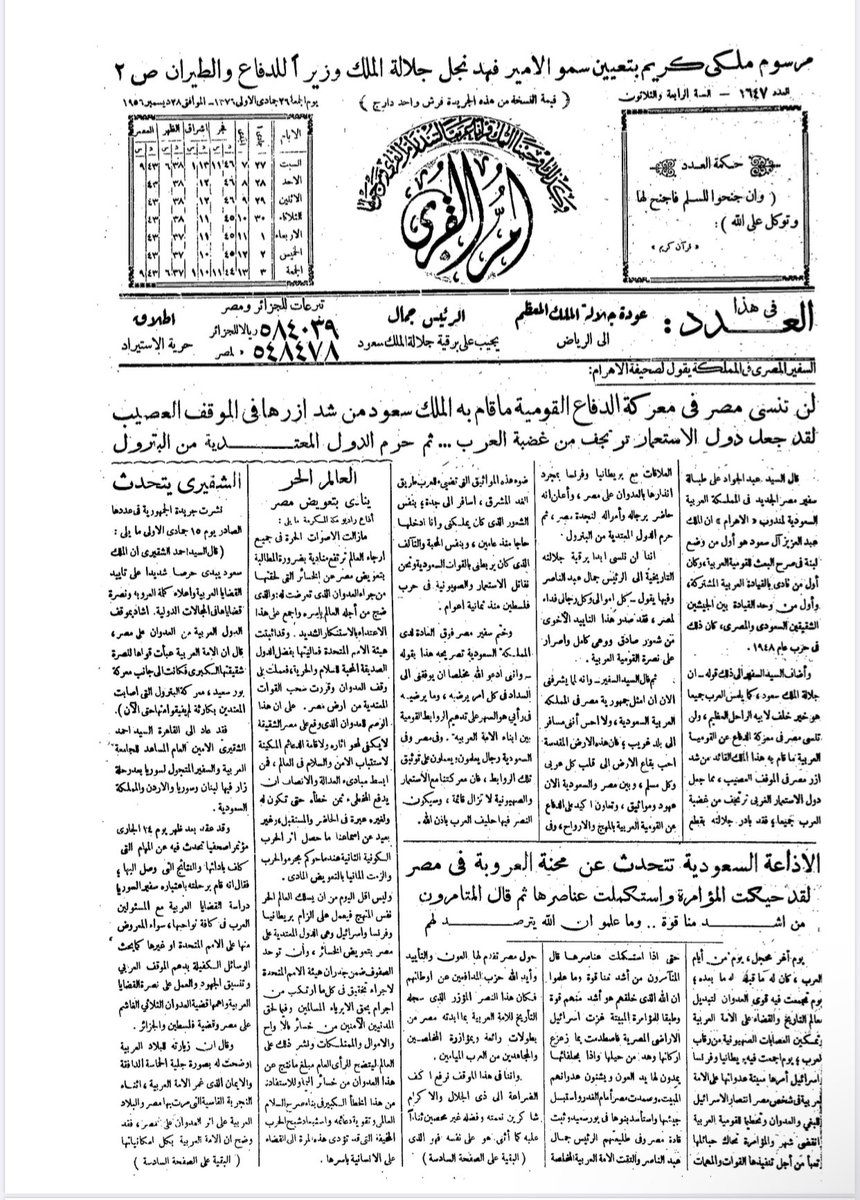 مرسوم ملكي كريم بتعيين سمو الامير فهد نجل جلالة الملك وزيراً للدفاع والطيران ص ٢
العدد ١٦٤٧ – السنة الرابعة والثلاثون
( قيمة النسخة من هذه الجريدة قرش واحد دارج )
يوم الجمعة ٢٦ جمادى الاولى ١٣٧٦ – الموافق ٢٨ ديسمبر ١٩٥٦
حكمة العدد
( وان جنحوا للسلم فاجنح لها
وتوكل على الله ) :
« قرآن كريم »
أم القرى
الايام
فجر
اشراق
الظهر
العصر
السبت
الاحد
الاثنين
الثلاثاء
الاربعاء
الخميس
الجمعة
في هذا
العـــدد :
عودة جلالة الملك المعظم
الى الرياض
الرئيس جمال
يجيب على برقية جلالة الملك سعود
تبرعات للجزائر ومصر
٥٨٤٠٣٩ ريالا للجزائر
٥٤٨٤٧٨ » لمصر
اطلاق
حرية الاستيراد
السفير المصرى فى المملكة يقول لصحيفة الاهرام :
لن تنسى مصر فى معركة الدفاع القومية ما قام به الملك سعود من شد ازرها فى الموقف العصيب
لقد جعل دول الاستعمار ترتجف من غضبة العرب ... ثم حرم الدول المعتـــدية من البترول
قال السيد عبد الجواد على طبالة
سفير مصر الجديد فى المملكة العربية
السعودية لمندوب « الاهرام » ان الملك
عبد العزيز آل سعود هو أول من وضع
لبنة فى صرح البعث القومية العربية، وكان
أول من نادى بالقيادة العربية المشتركة،
وأول من وحد القيادة بين الجيشين
الشقيقين السعودى والمصرى، كان ذلك
فى حرب عام ١٩٤٨ .
وأضاف السيد السفير الى ذلك قوله – ان
جلالة الملك سعود، كما يلمس العرب جميعا
هو خير خلف لابيه الراحل العظيم ، ولن
تنسى مصر فى معركة الدفاع عن القومية
العربية ما قام به هذا الملك القائد من شد
ازر مصر فى الموقف العصيب ، مما جعل
دول الاستعمار الغربى ترتجف من غضبة
العرب جميعا ؛ فقد بادر جلالته بقطع
العلاقات مع بريطانيا وفرنسا بمجرد
انذارها بالعدوان على مصر ، وأعلن انه
حاضر برجاله وأمواله لنجدة مصر ، ثم
حرم الدول المعتدية من البترول .
اننا لن ننسى ابدا برقية جلالته
التاريخية الى الرئيس جمال عبد الناصر
وفيها يقول – كل اموالى وكل رجالى فداء
لمصر ، فقد صدر هذا التاييد الأخوى
عن شعور صادق ووعى كامل واصرار
على نصرة القومية العربية .
ثم قال السيد السفير – وانه لما يشرفنى
الان ان امثل جمهورية مصر فى المملكة
العربية السعودية ، ولا احس أننى مسافر
الى بلد غريب ؛ فان هذه الارض المقدسة
احب بقاع الارض الى قلب كل عربى
وكل مسلم ، وبين مصر والسعودية الان
عهود ومواثيق ، وتعاون اكيد على الدفاع
عن القومية العربية بالمهج والارواح ، وفى
ضوء هذه المواثيق التى تضىء للعرب طريق
الغد المشرق ، اسافر الى جدة ؛ بنفس
الشعور الذى كان يملكنى وانا ادخلها
حاجا منذ عامين ، وبنفس المحبة والتآلف
الذى كان يربطنى بالقوات السعودية ونحن
نقاتل الاستعمار والصهيونية فى حرب
فلسطين منذ ثمانية اعوام .
وختم سفير مصر فوق العادة لدى
المملكة السعودية تصريحه هذا بقوله
– وانى ادعو الله مخلصا ان يوفقنى الى
السداد فى كل امر يرضيه ، وما يرضيه
فى رأيى هو السهر على تدعيم الروابط القومية
بين ابناء الامة العربية . وفى مصر وفى
السعودية رجال يعملون ؛ يعملون على توثيق
تلك الروابط ، فان معركتنا مع الاستعمار
والصهيونية لا تزال قائمة ، وسيكون
النصر فيها حليف العرب باذن الله .
العالم الحر
ينادى بتعويض مصر
اذاع راديو مكة المكرمة ما يلى :
مازالت الاصوات الحرة فى جميع
ارجاء العالم ترتفع منادية بضرورة المطالبة
بتعويض مصر عن الخسائر التى لحقتها
من جراء العدوان الذى تعرضت له ؛ والذى
ضج من أجله العالم بأسره واجمع على هذا
الاعتداء بالاستنكار الشديد . وقد اثبتت
هيئة الامم المتحدة فعاليتها بفضل الدول
الصديقة المحبة للسلام والحرية ، فعملت على
وقف العدوان وقررت سحب القوات
المعتدية من ارض مصر . على ان هذا
لا يكفى لمحو آثاره ولاقامة الدعائم المكينة
لاستتباب الامن والسلام فى العالم ، فمن
ابسط مبادىء العدالة والانصاف ان
يدفع المخطىء ثمن خطأه حتى تكون له
ولغيره عبرة فى الحاضر والمستقبل ، وغير
بعيد عن اسماعنا ما حصل اثر الحرب
الكونية الثانية عندما حوكم مجرمو الحرب
والزمت المانيا بالتعويض المادى .
وليس اقل اليوم من ان يسلك العالم الحر
نفس النهج فيعمل على الزام بريطانيا
وفرنسا واسرائيل وهى الدول المعتدية على
مصر بتعويض الخسائر ، وأن توحد
الصفوف ضمن جدران هيئة الامم المتحدة
لاجراء تحقيق فى كل ما ارتكب من
اجرام بحق الابرياء المسالمين وفيما لحق
المدنيين الآمنين من خسائر بالأرواح
والاموال والممتلكات ونشر ذلك على
العالم ليتضح للرأى العام مبلغ ما نتج عن
هذا العدوان من خسائر
من هذا الخطأ الكبير فى بناء صرح السلام
العالمى وتقوية دعائمه واستبعاد شبح الحرب
المخيفة التى قد تؤدى هذه المرة الى القضاء
على الانسانية بأسرها .
الشقيرى يتحدث
نشرت جريدة الجمهورية فى عددها
الصادر يوم ١٥ جمادى الاولى ما يلى :
( قال السيد احمد الشقيرى ان الملك
سعود يبدى حرصا شديدا على تاييد
القضايا العربية واعلاء كلمة العروبة ونصرة
قضاياها فى المجالات الدولية. اشاد بموقف
الدول العربية من العدوان على مصر ،
قال ان الامة العربية عبأت قواها لنصرة
شقيقتها الكبرى فكانت الى جانب معركة
بور سعيد ، معركة البترول التى اصابت
المعتدين بكارثة لم يفيقوا منها حتى الآن ).
فقد عاد الى القاهرة السيد احمد
الشقيرى الامين العام المساعد للجامعة
العربية والسفير المتجول لسوريا بعد رحلة
زار فيها لبنان وسوريا والاردن والمملكة
السعودية .
وقد عقد بعد ظهر يوم ١٤ الجارى
مؤتمرا صحفيا تحدث فيه عن المهام التى
كلف بادائها والنتائج التى وصل اليها ؛
فقال انه قام برحلته باعتباره سفير السوريا
دراسة القضايا العربية مع المسئولين
العرب فى كافة نواحيها ، سواء المعروض
منها على الامم المتحدة او غيرها كما بحث
الوسائل الكفيلة بدعم الموقف العربى
و تنسيق الجهود والعمل على نصرة القضايا
العربية واهمها قضية العدوان الثلاثى الغاشم
على مصر وقضية فلسطين والجزائر .
وقال ان زيارته للبلاد العربية
اوضحت له بصورة جلية الحماسة الدافقة
والايمان الذى غمر الامة العربية ، اثناء
التجربة القاسية التى مرت بها مصر والبلاد
العربية على اثر العدوان على مصر ، فقد
وضح ان الامة العربية بكل امكانياتها
( البقية على الصفحة السادسة )
الاذاعة السعودية تتحدث عن محنة العروبة فى مصر
لقد حيكت المؤامرة واستكملت عناصرها ثم قال المتامرون
من اشـــد منا قوة .. وما علموا ان الله يترصـــد لهم
يوم أغر محجل ، يوم من أيام
العرب ، كان له ما قبله وله ما بعده ؛
يوم تجمعت فيه قوى العدوان لتبديل
معالم التاريخ والقضاء على الامة العربية
وتمكين العصابات الصهيونية من رقاب
العرب ؛ يوم اجمعت فيه بريطانيا وفرنسا
واسرائيل أمرها مبيتة عدوانها على الامة
العربية فى شخص مصر انتصار الاسرائيل
البغى والعدوان وتحطيما للقومية العربية
انقضى شهر والمؤامرة تحاك حبائلها
تعبأ من أجل تنفيذها القوات والمعدات
حتى اذا استكملت عناصرها قال
المتآمرون من أشد منا قوة وما علموا
ان الله الذى خلقهم هو أشد منهم قوة
وطبقا للمؤامرة المبيتة غزت اسرائيل
الاراضى المصرية فاصطدمت بما زعزع
اركانها وهد من حيلها واذا بحلفائها
يمدون لها يد العون ويشنون عدوانهم
المبيت ، وصمدت مصر أمام الغدر واستبسل
جيشها واستأسد بنوها فى بورسعيد وثبت
قادة مصر وفى طليعتهم الرئيس جمال
عبد الناصر والتفت الامة العربية المخلصة
حول مصر تقدم لها العون والتأييد
وأيد الله حزب المدافعين عن اوطانهم
فكان هذا النصر المؤزر الذى سجله
التأريخ للامة العربية بما ابدته مصر من
بطولات رائعة وبمؤازرة المخلصين
والمجاهدين من العرب الميامين .
واننا فى هذا الموقف نرفع اكف
الضراعة الى ذى الجلال والاكرام
شاكرين نعمته وفضله غير محصين ثناءاً
عليه كما أثنى هو على نفسه فهو الذى
( البقية على الصفحة السادسة )